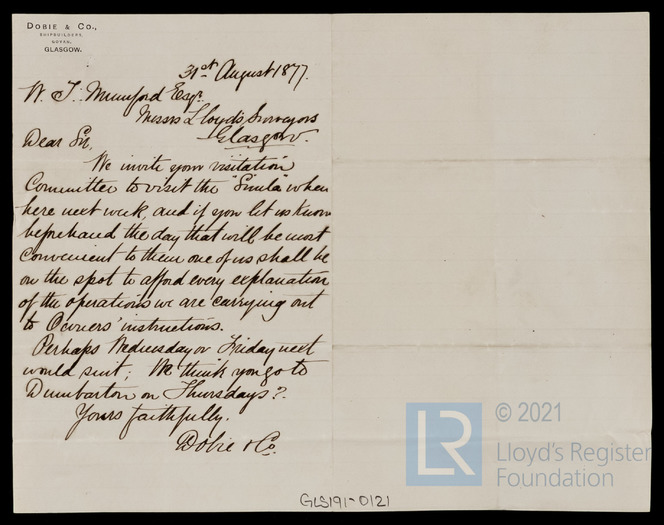 DOBIE & CO.,
SHIPBUILDERS,
GOVAN,
GLASGOW.
31st August 1877.
W. T. Mumford Esqr.
Messrs Lloyd's Surveyors
Glasgow.
Dear Sir,
We invite your visitation
Committee to visit the "Simla" when
here next week, and if you let us know
beforehand the day that will be most
convenient to them one of us shall be
on the spot to afford every explanation
of the operations we are carrying out
to Owners' instructions.
Perhaps Wednesday or Friday next
would suit; We think you go to
Dumbarton on Thursdays?.
Yours faithfully.
Dobie & Co.
GLS191-0121
LR
© 2021
Lloyd's Register
Foundation